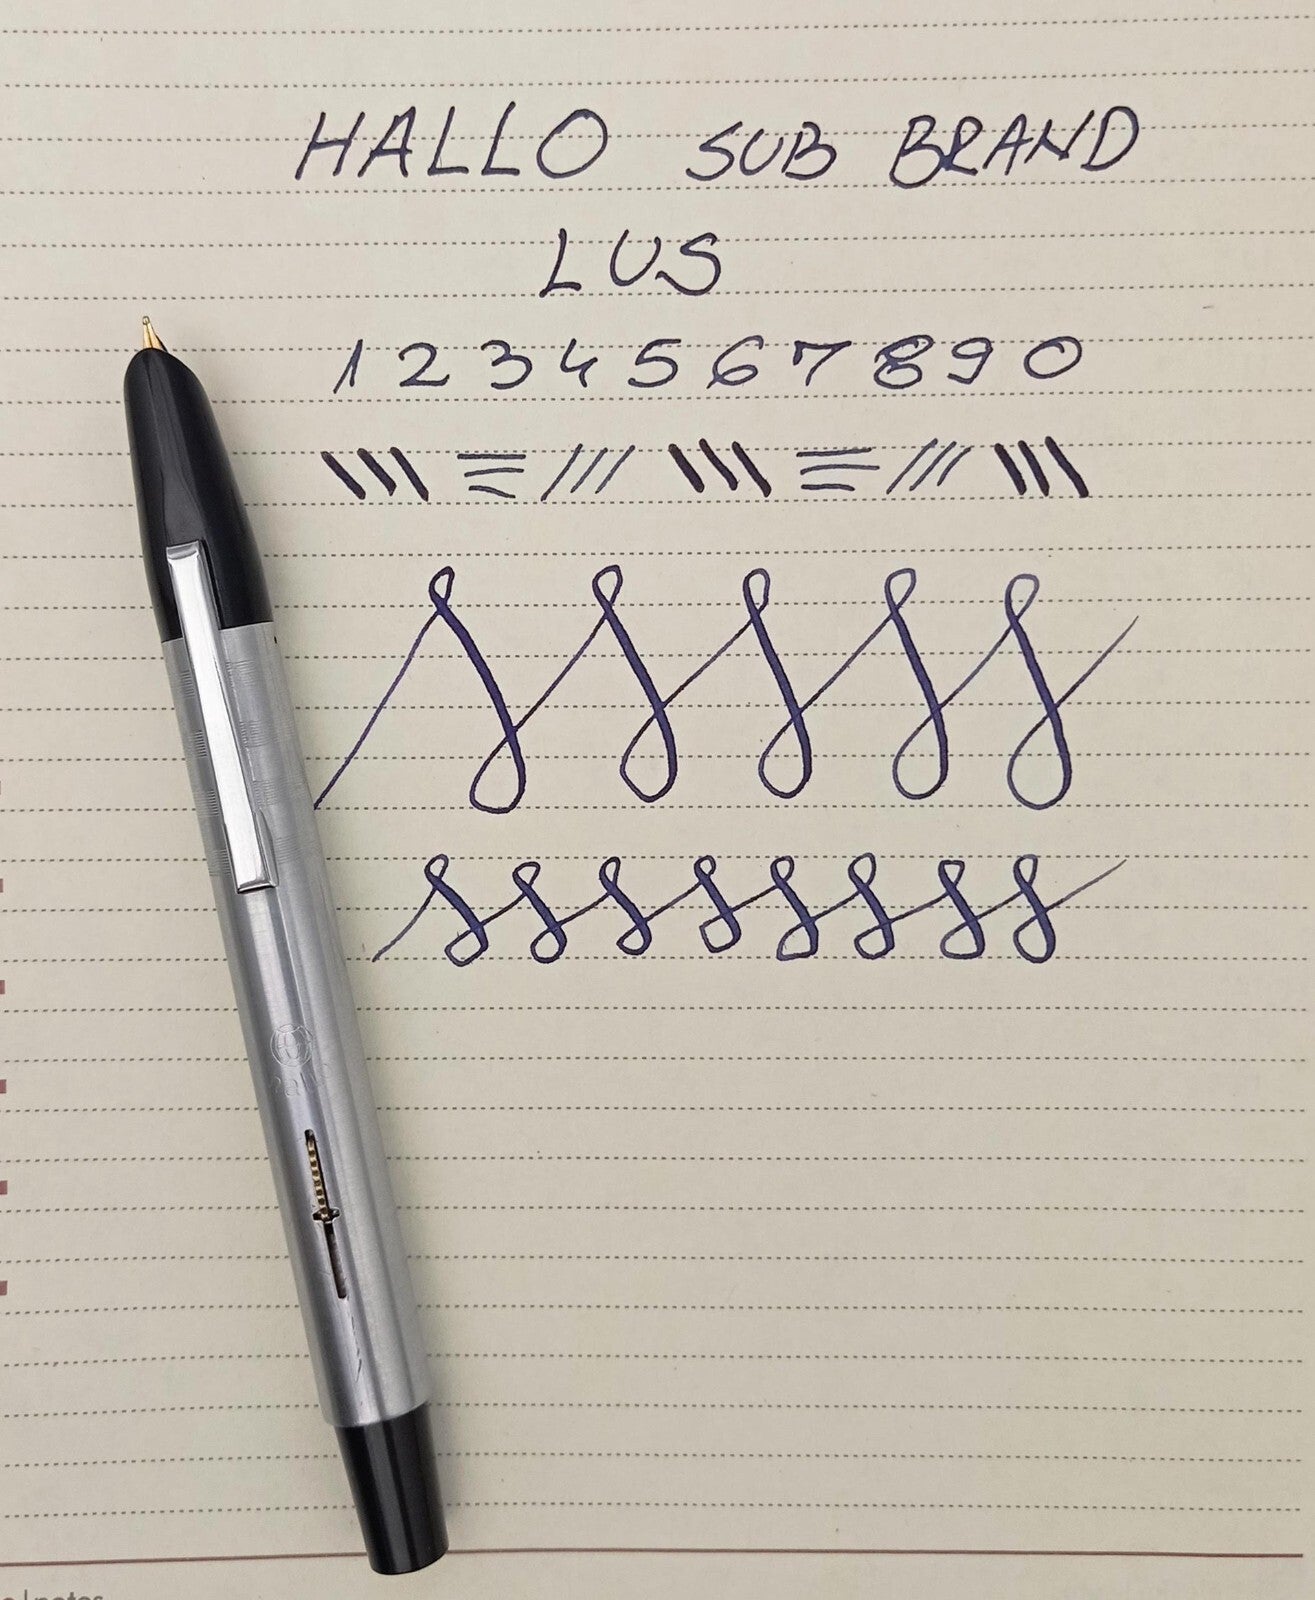 HALLO SUB BRAND
LUS
1 2 3 4 5 6 7 8 9 0
notes